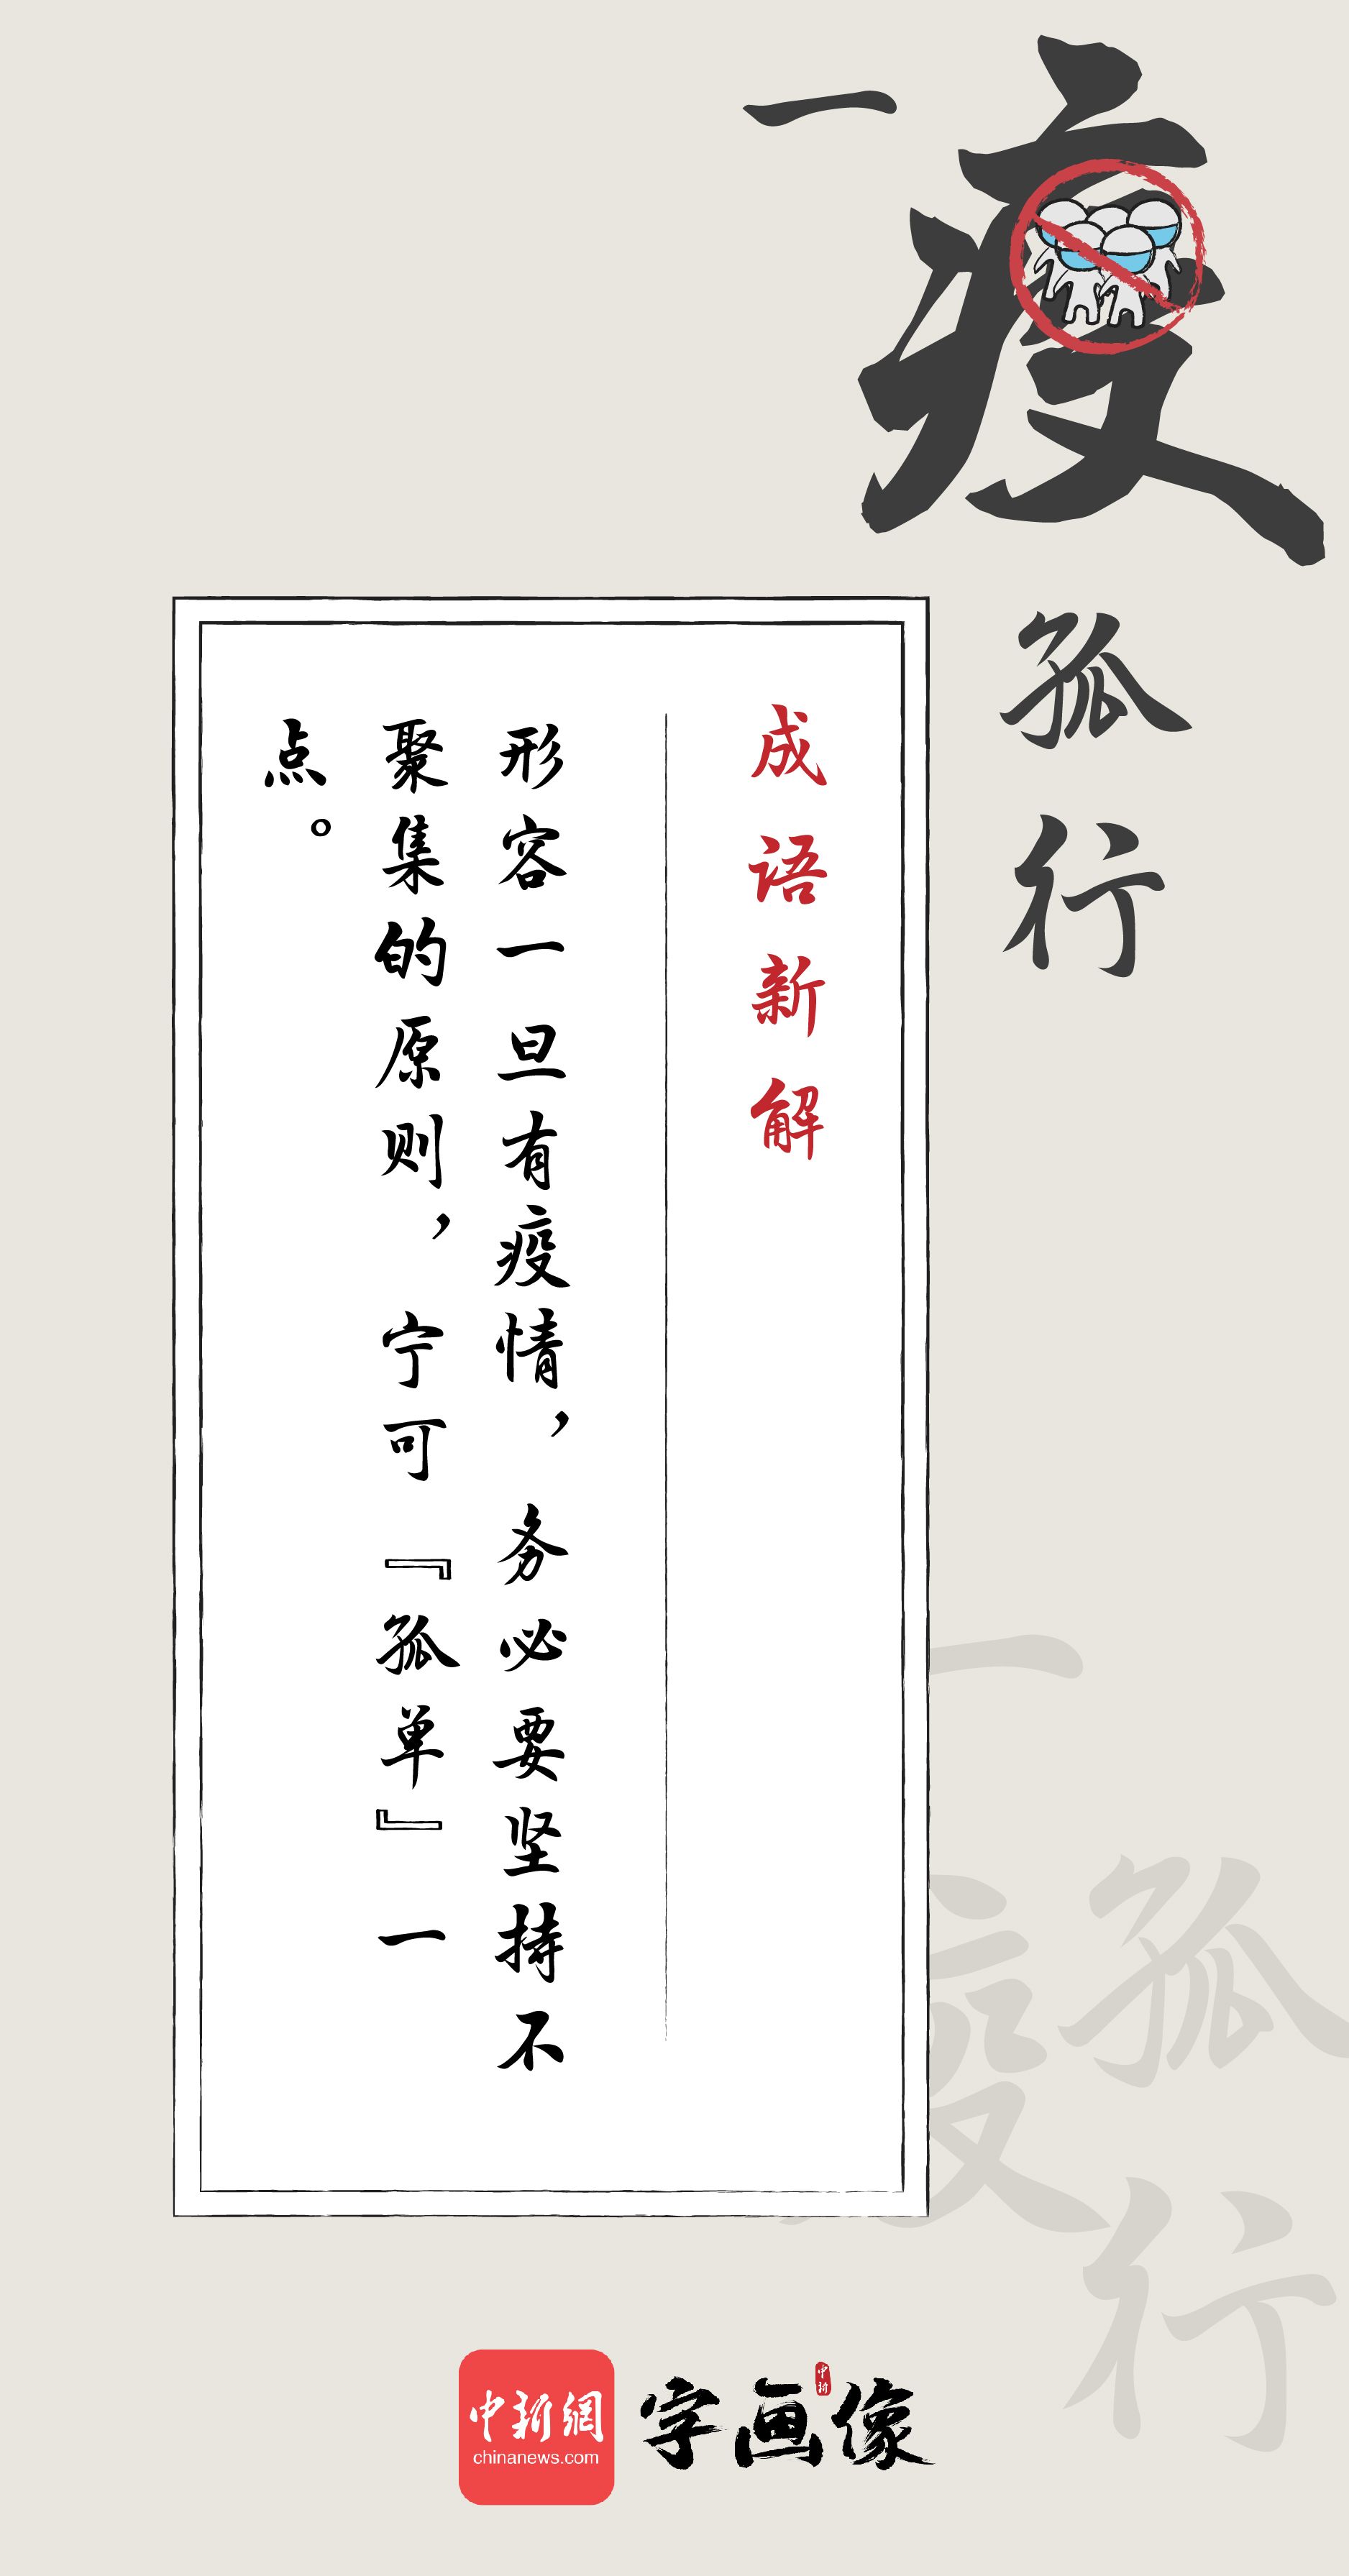 一疫孤行
成语新解
形容一旦有疫情，务必要坚持不
聚集的原则，宁可『孤单』一
点。
一疫孤行
中新網
chinanews.com
字画像